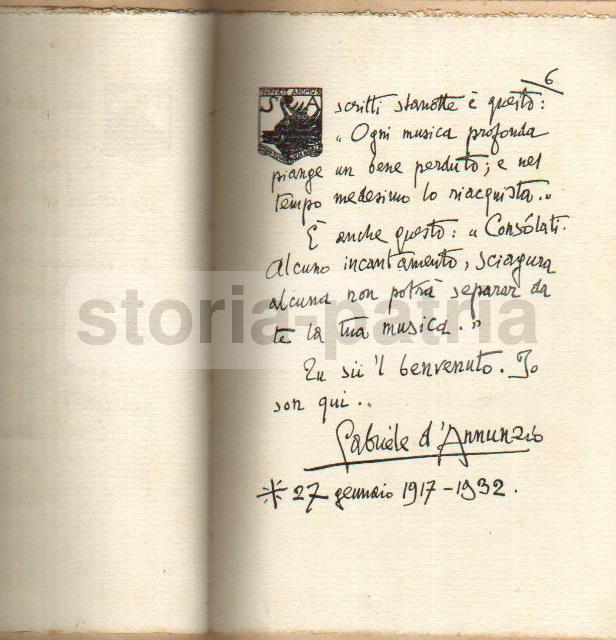 6
S A
scritti stanotte è questo:
" Ogni musica profonda
piange un bene perduto; e nel
tempo medesimo lo riacquista."
È anche questo: " Consólati.
Alcuno incantamento, sciagura
alcuna non potrà separar da
te la tua musica."
Tu sii 'l benvenuto. Io
son qui..
Gabriele d'Annunzio
* 27 gennaio 1917-1932.
storia-patria